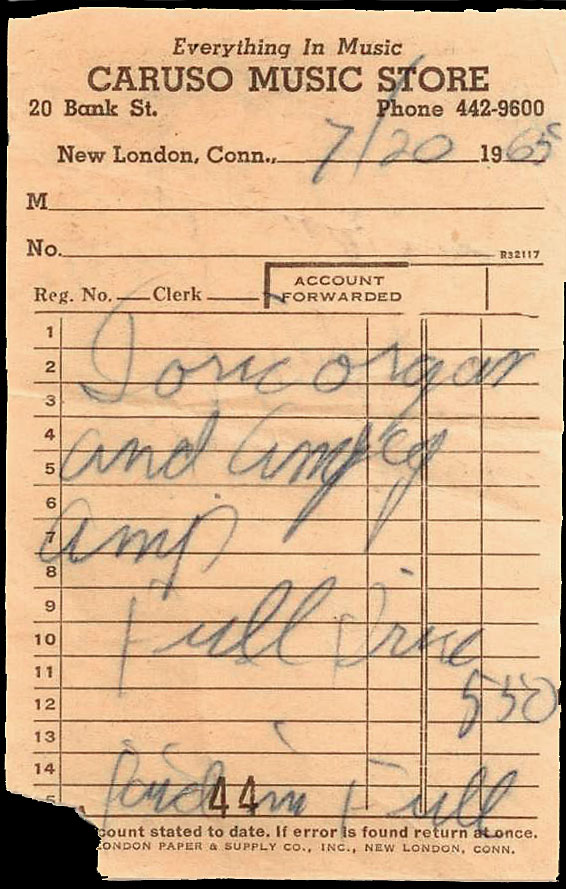 Everything In Music
CARUSO MUSIC STORE
20 Bank St. Phone 442-9600
New London, Conn., 7/20 1965
M
No.
R32117
Reg. No. Clerk
ACCOUNT
FORWARDED
1
2 Doric organ
3
4
5 and Ampeg
6
7 amp
8
9
10 Full Price
11
12 550
13
14
5 Paid in Full
44
count stated to date. If error is found return at once.
ONDON PAPER & SUPPLY CO., INC., NEW LONDON, CONN.